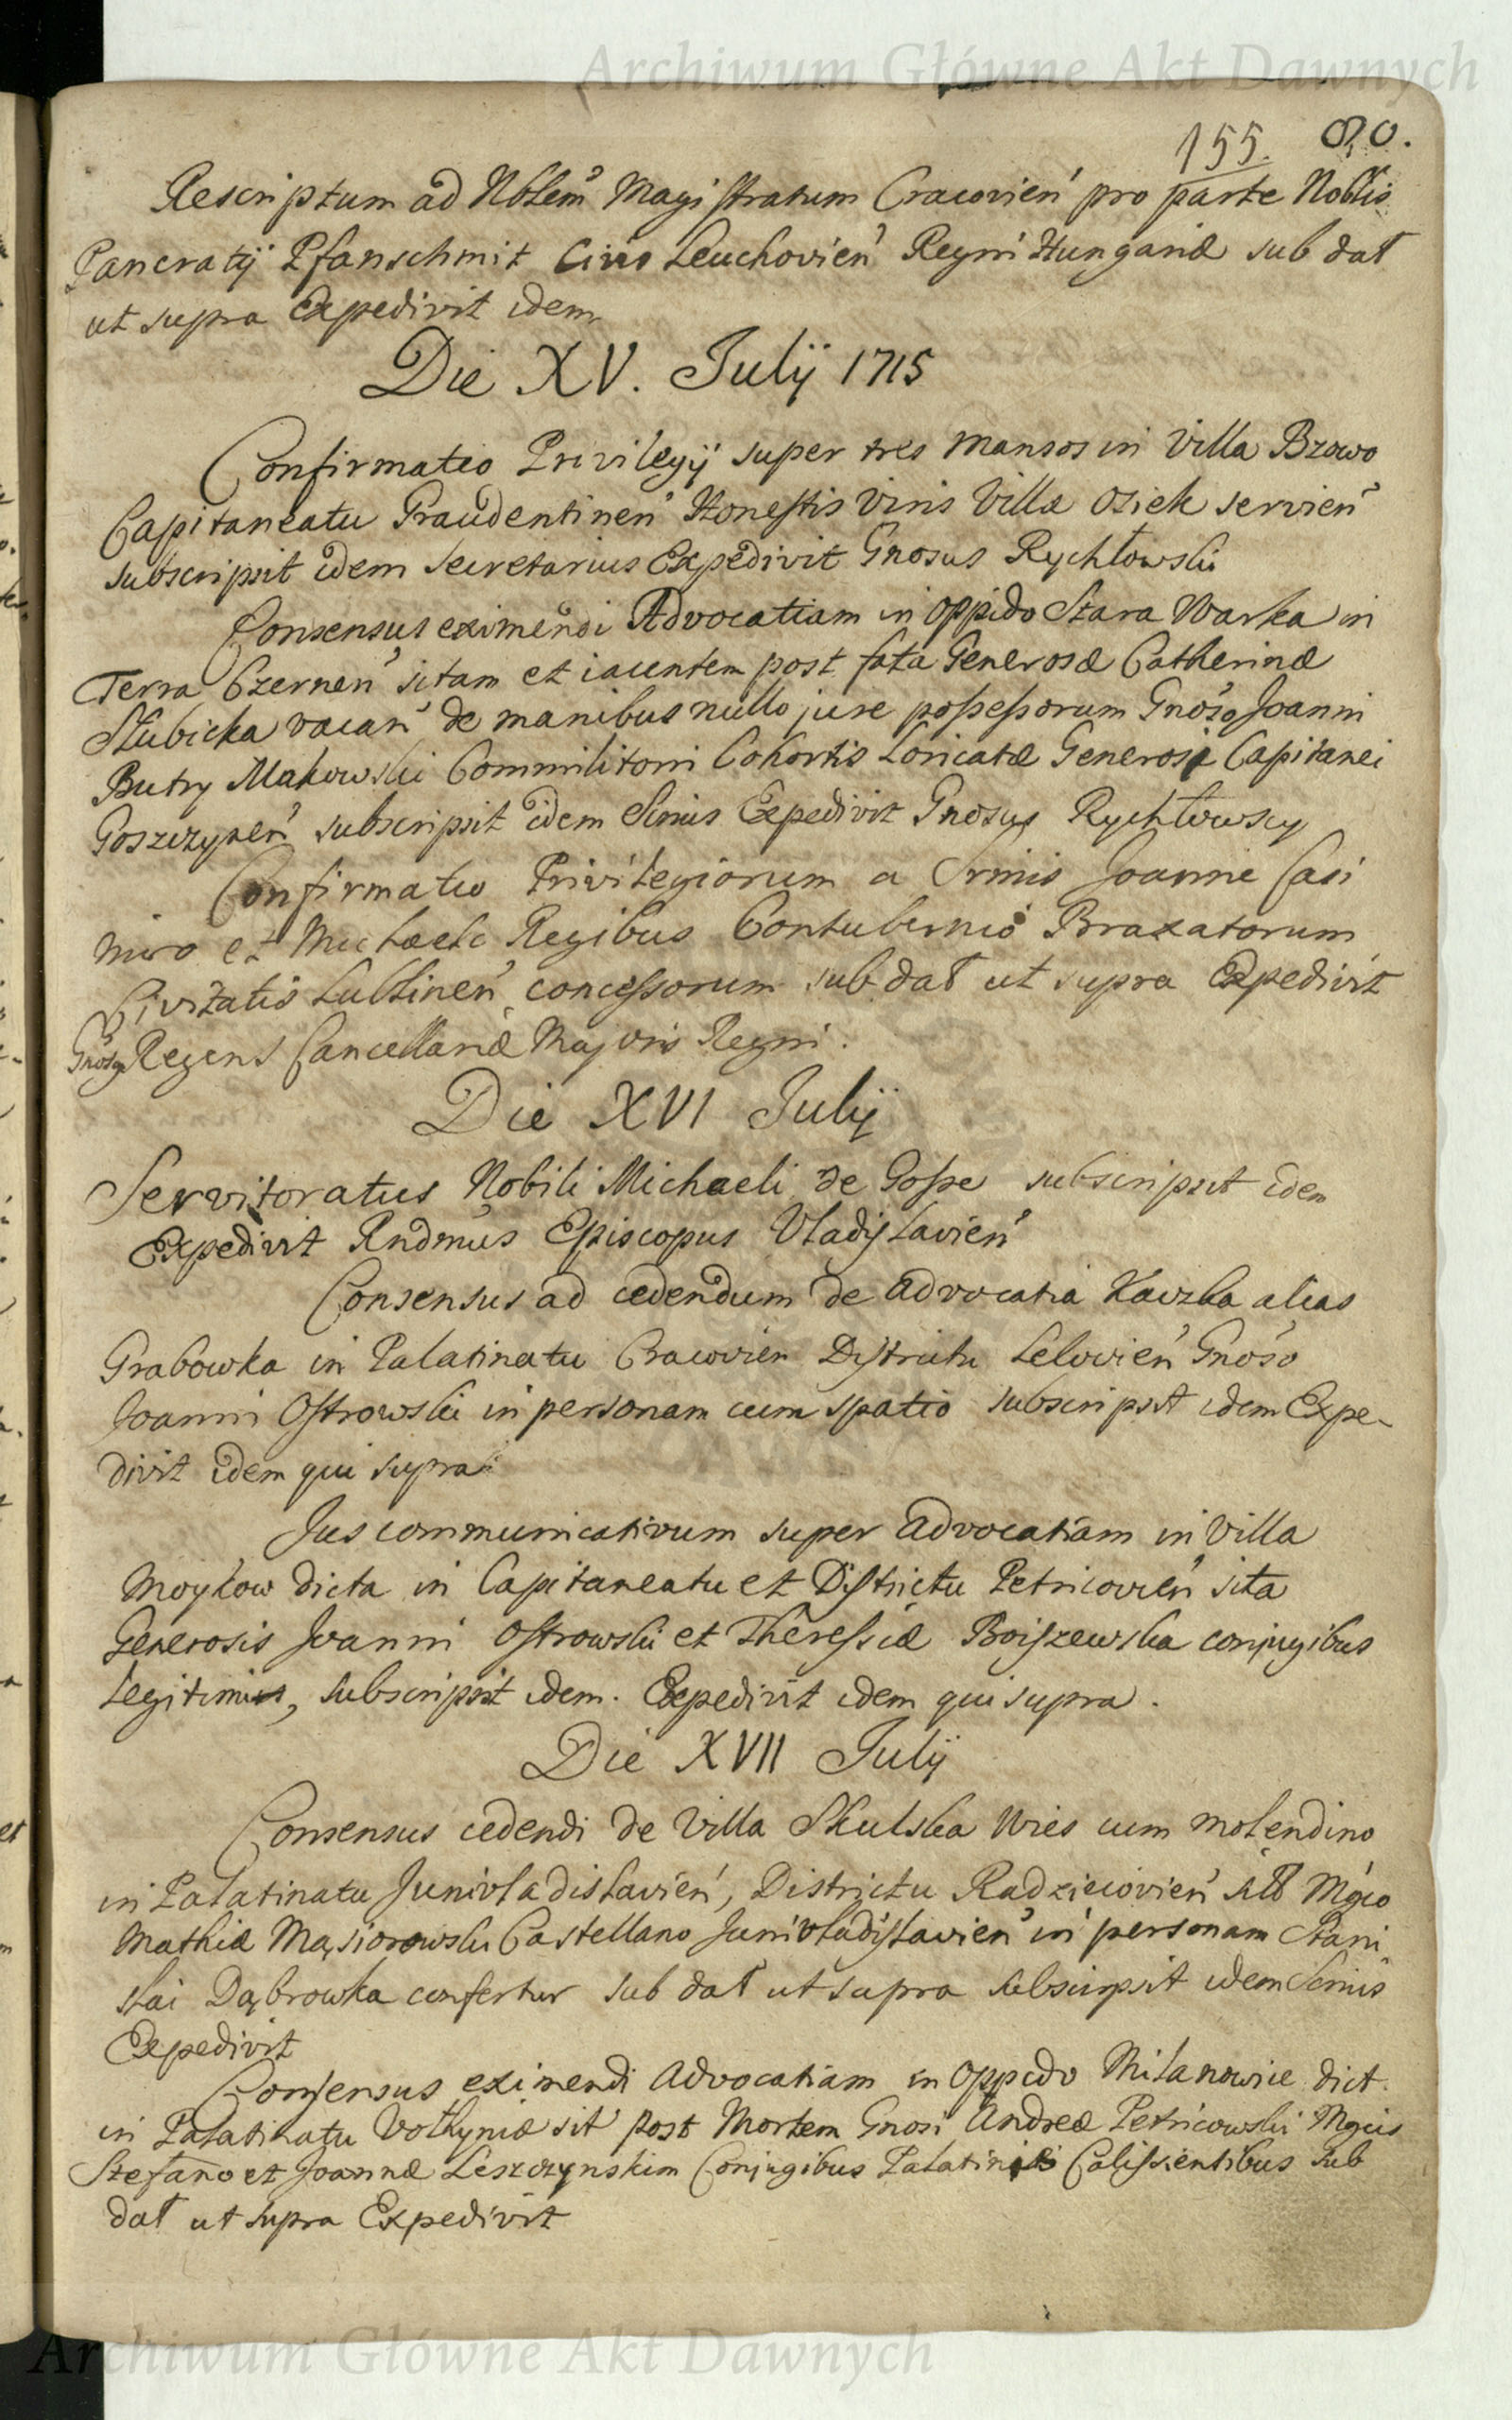 Archiwum Główne Akt Dawnych
155. 80.
Rescriptum ad Nblem Magistratum Cracovien pro parte Noblis
Pancratij Pfanschmit Civis Leuchovien Regni Hungariæ sub dat
ut supra Expedivit idem
Die XV. Julij 1715
Confirmatio Privilegij super tres mansos in Villa Bzowo
Capitaneatu Graudentinen Honestis Viris Villæ Osiek servien
subscripsit idem secretarius Expedivit Gnosus Rychłowski
Consensus eximendi Advocatiam in oppido Stara Warka in
Terra Czernen sitam et iacentem post fata Generosæ Catherinæ
Słubicka vacan de manibus nullo jure possessorum Gnoso Joanni
Butry Makowski Commilitoni Cohortis Loricatæ Generosi Capitanei
Goszczynen subscripsit idem Srius Expedivit Gnosus Rychłowscy
Confirmatio Privilegiorum a Srmis Joanne Casi
miro et Michaele Regibus Contubernio Braxatorum
Civitatis Lublinen concessorum sub dat ut supra Expedivit
Gnosus Regens Cancellariæ Majoris Regni.
Die XVI Julij
Servitoratus Nobili Michaeli de Gosse subscripsit idem
Expedivit Rndmus Episcopus Vladislavien
Consensus ad cedendum de advocatia Kawzka alias
Grabowka in Palatinatu Cracovien Districtu Lelovien Gnoso
Joanni Ostrowski in personam cum spatio subscripsit idem Expe-
divit idem qui supra
Jus communicativum super advocatiam in Villa
Moykow dicta in Capitaneatu et Districtu Petricovien sita
Generosis Joanni Ostrowski et Theressiæ Boiszewska conjugibus
Legitimis, subscripsit idem. Expedivit idem qui supra.
Die XVII Julij
Consensus cedendi de Villa Skulska Wies cum molendino
in Palatinatu Junivladislavien, Districtu Radzieiovien Mgco
Mathiæ Mąsiorowski Castellano Junivladislavien in personam Stani
slai Dąbrowka confertur sub dat ut supra subscripsit idem Srius
Expedivit
Consensus eximendi Advocatiam in Oppido Milanowie dict.
in Palatinatu Volhyniæ sit post Mortem Gnosi Andreæ Petricowski Mgcis
Stefano et Joannæ Leszczynskim Conjugibus Palatinis Calissientibus sub
dat ut supra Expedivit
Archiwum Główne Akt Dawnych